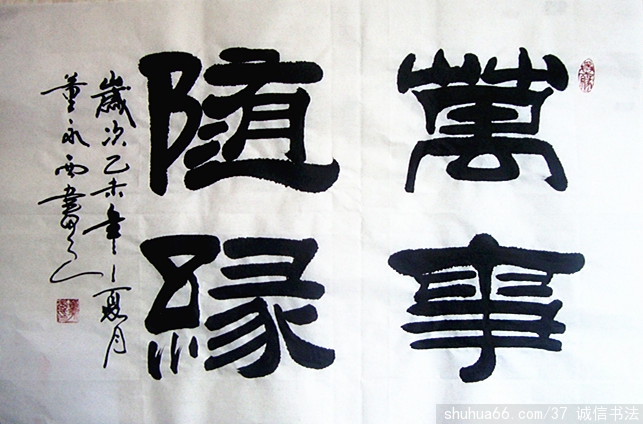 萬事
随緣
歲次乙未年夏月
董永西書之
shuhua66.com/37 诚信书法